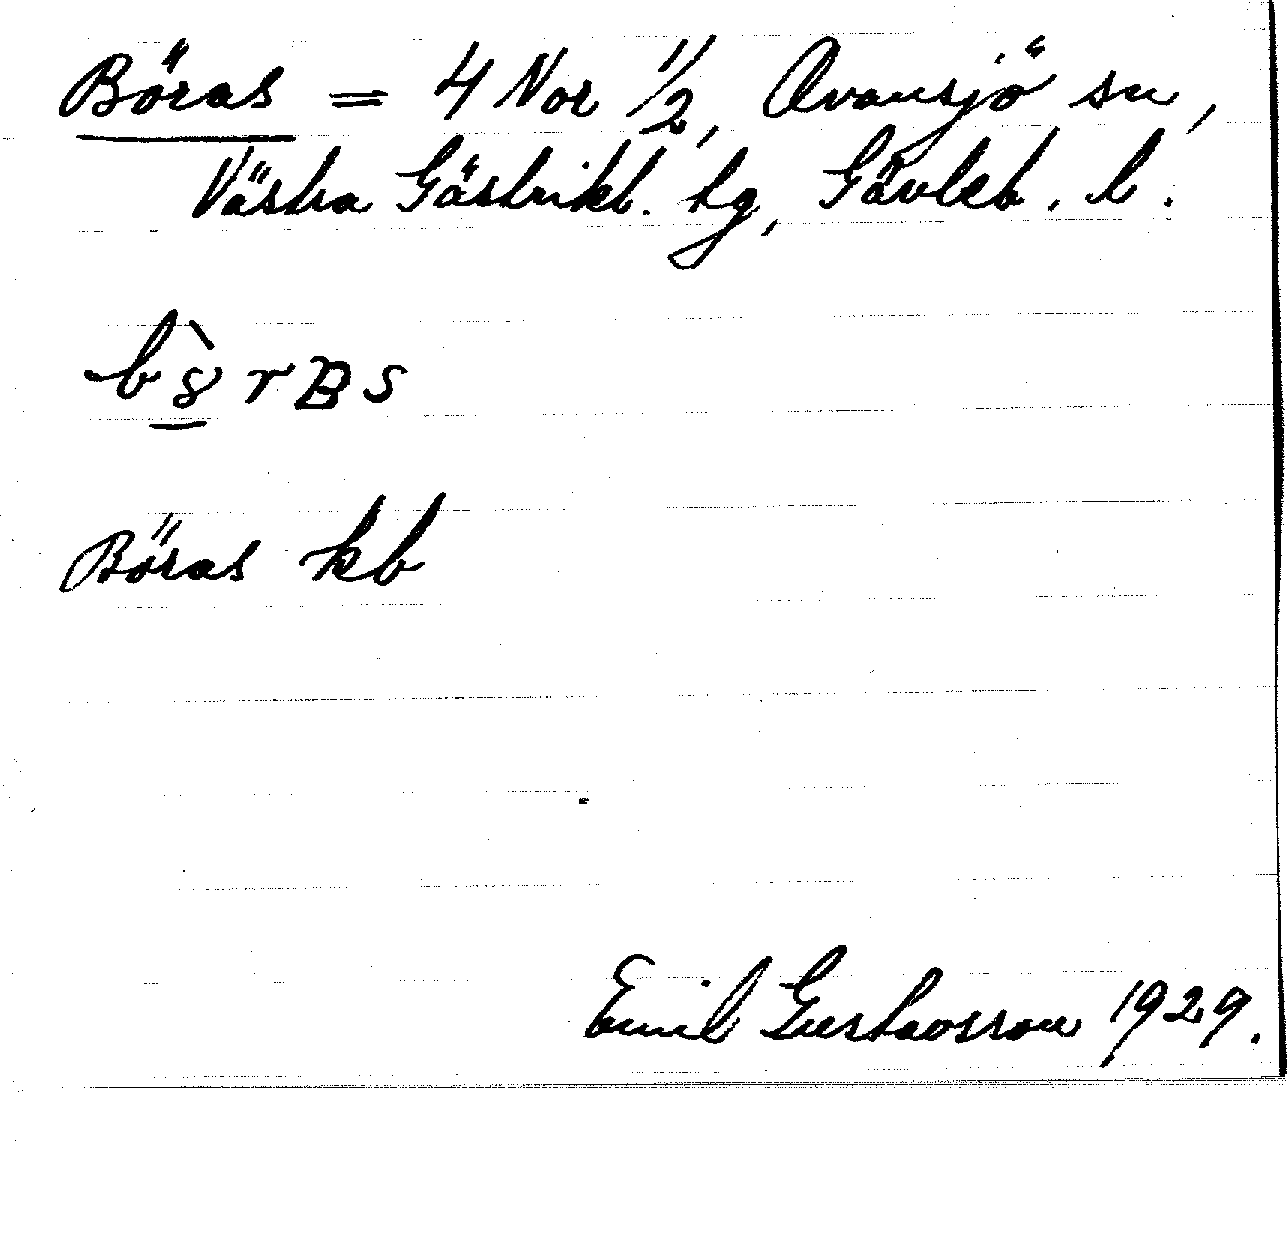 Böras = 4 Nor 1/2, Ovansjö sn,
Västra Gästrikl. tg, Gävleb. l.
Böras kb
Emil Gustavsson 1929.